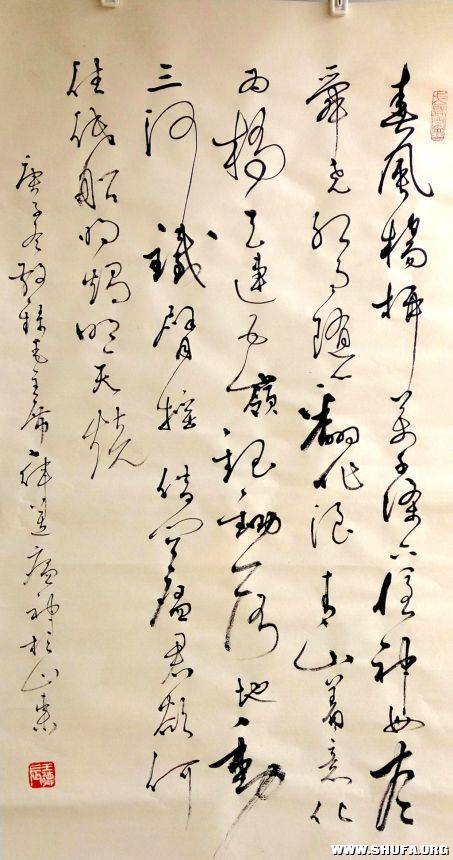 春風楊柳万千條六億神州尽
舜尧红雨随心翻作浪青山着意化
为橋天連五嶺銀鋤落地動
三河鐵臂摇借问瘟君欲何
往纸船明燭照天烧
庚子冬敬録毛主席诗送瘟神於山東
WWW.SHUFA.ORG